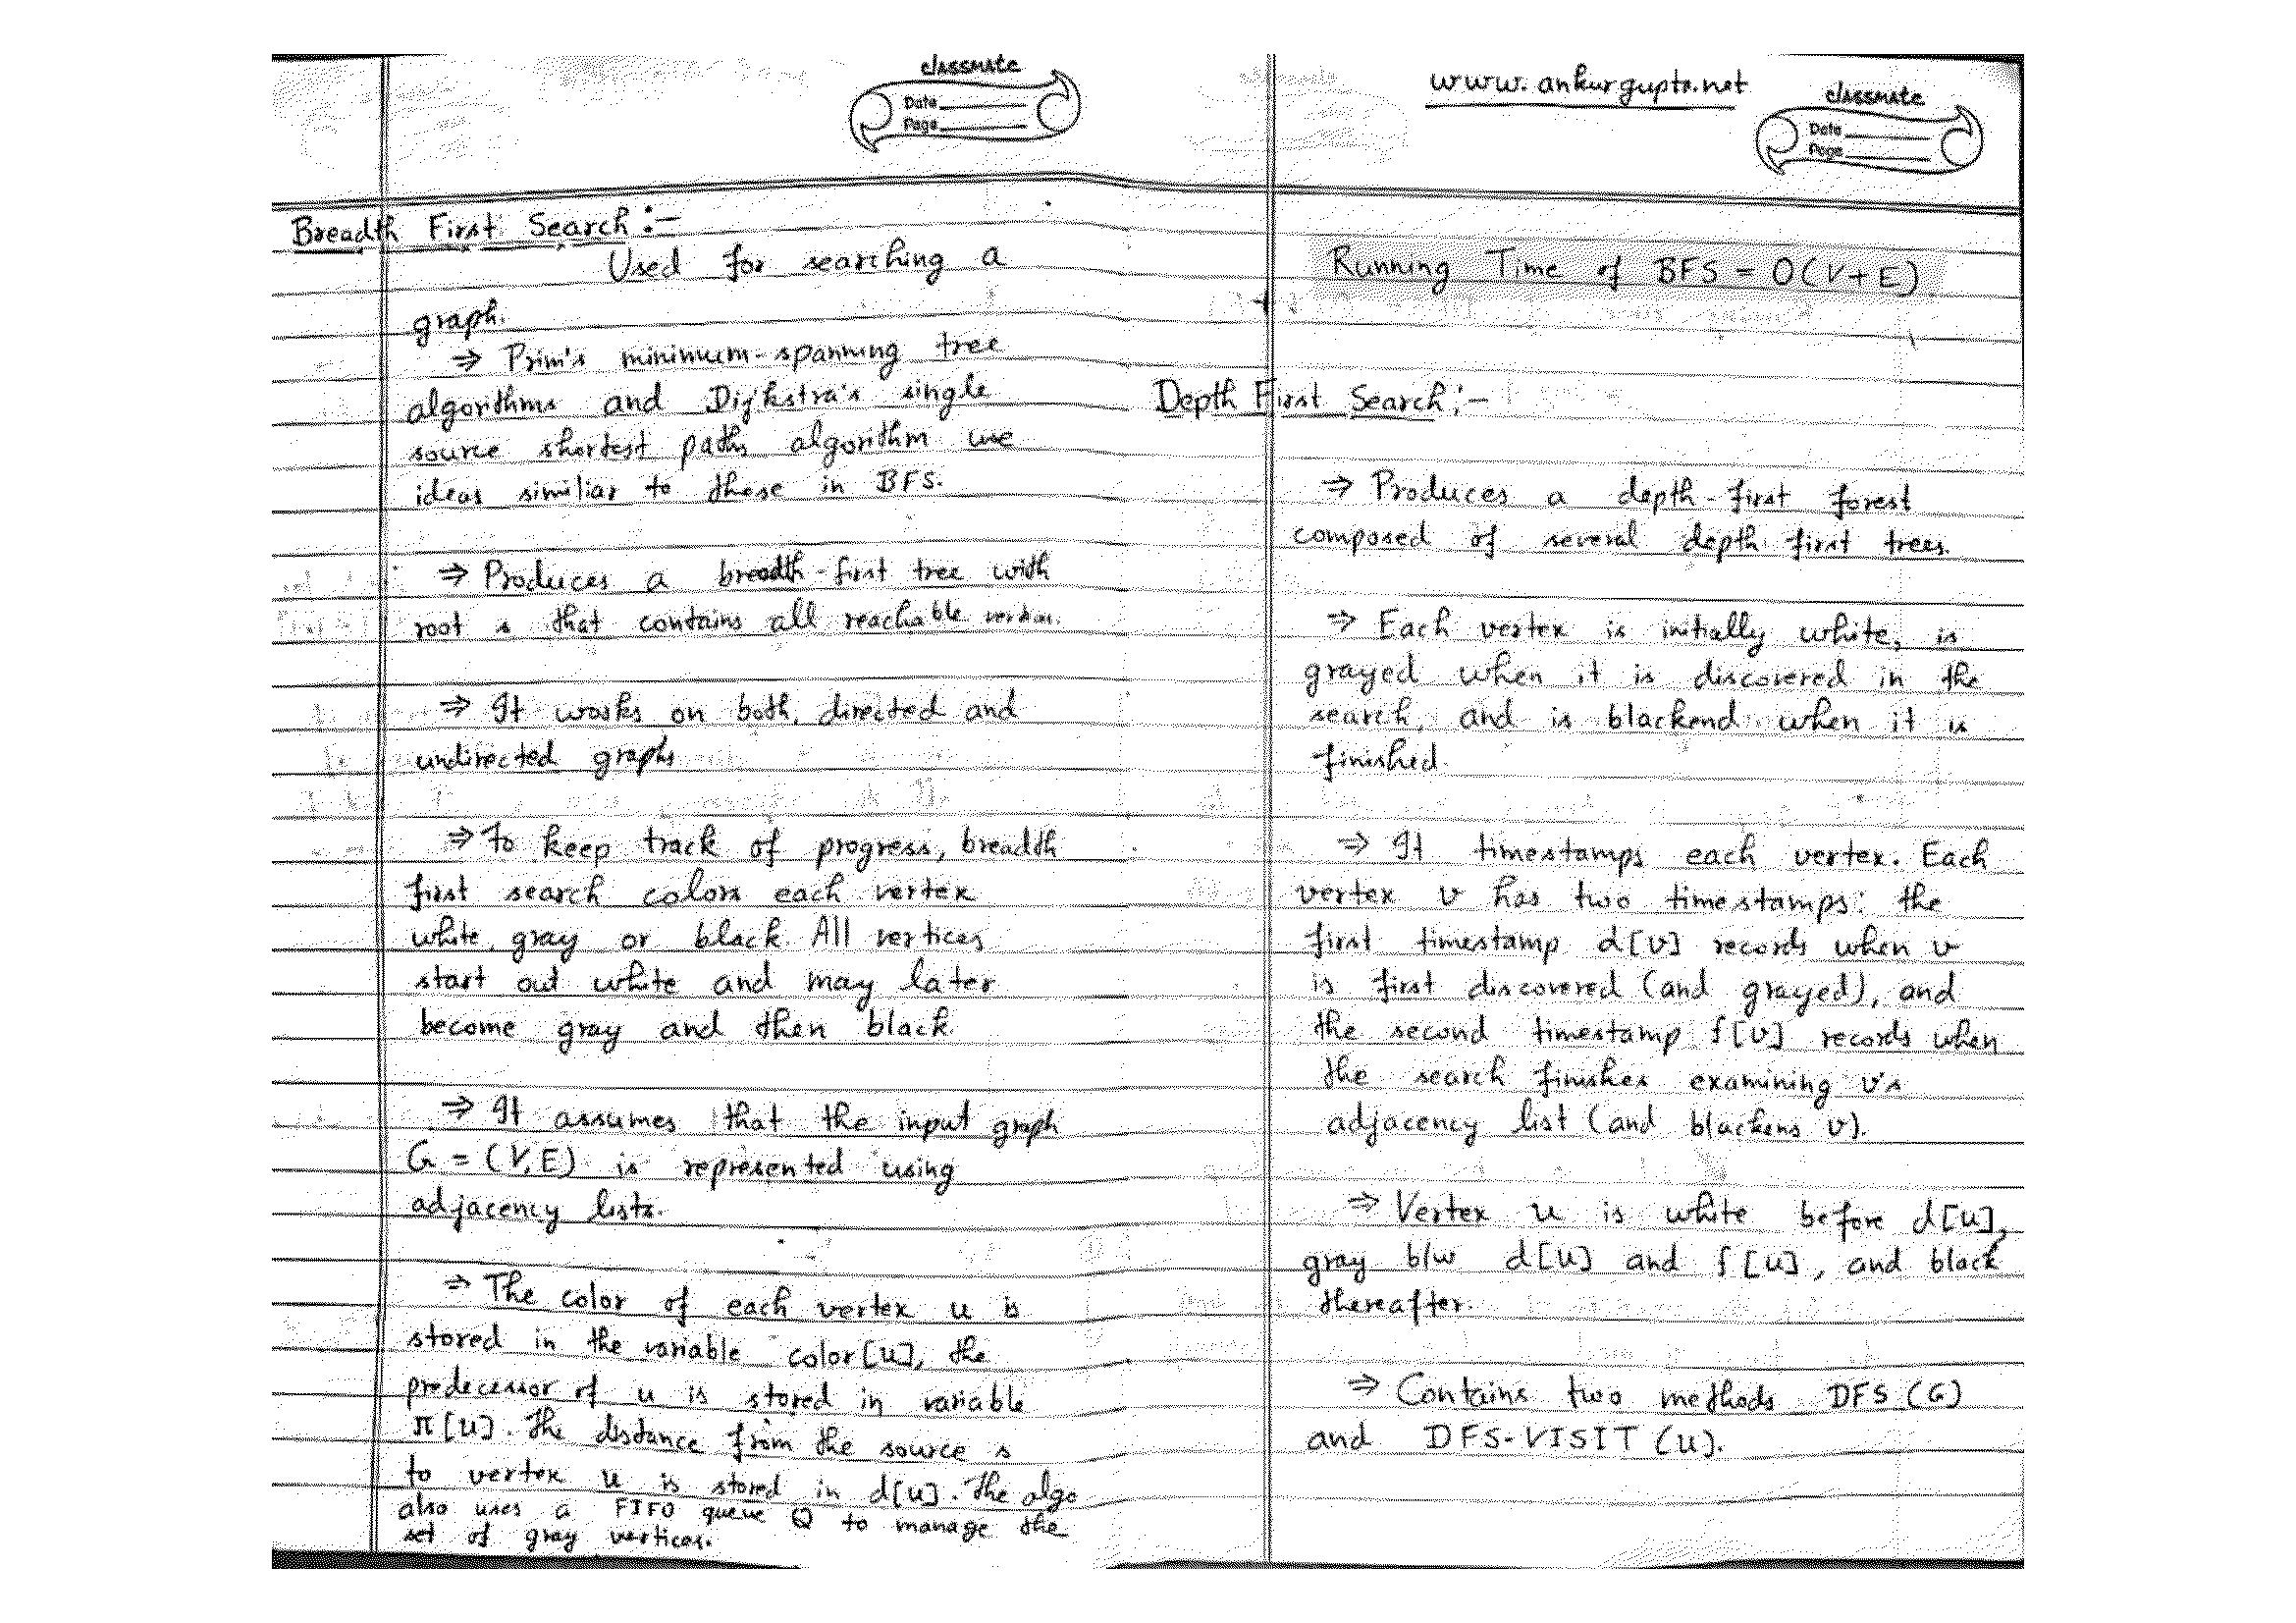 classmate
Date
Page
Breadth First Search :-
Used for searching a
graph.
⇒ Prim's minimum-spanning tree
algorithms and Dijkstra's single
source shortest paths algorithm use
ideas similiar to those in BFS.
⇒ Produces a breadth-first tree with
root s that contains all reachable vertices.
⇒ It works on both, directed and
undirected graphs
⇒ To keep track of progress, breadth
first search colors each vertex
white, gray or black. All vertices
start out white and may later
become gray and then black.
⇒ It assumes that the input graph
G = (V,E) is represented using
adjacency lists.
⇒ The color of each vertex u is
stored in the variable color[u], the
predecessor of u is stored in variable
π[u]. The distance from the source s
to vertex u is stored in d[u]. The algo
also uses a FIFO queue Q to manage the
set of gray vertices.
www.ankurgupta.net
classmate
Date
Page
Running Time of BFS = O(V+E)
Depth First Search :-
⇒ Produces a depth-first forest
composed of several depth first trees.
⇒ Each vertex is initially white, is
grayed when it is discovered in the
search, and is blackend when it is
finished.
⇒ It timestamps each vertex. Each
vertex v has two timestamps: the
first timestamp d[v] records when v
is first discovered (and grayed), and
the second timestamp f[v] records when
the search finishes examining v's
adjacency list (and blackens v).
⇒ Vertex u is white before d[u],
gray b/w d[u] and f[u], and black
thereafter.
⇒ Contains two methods DFS (G)
and DFS-VISIT (u).